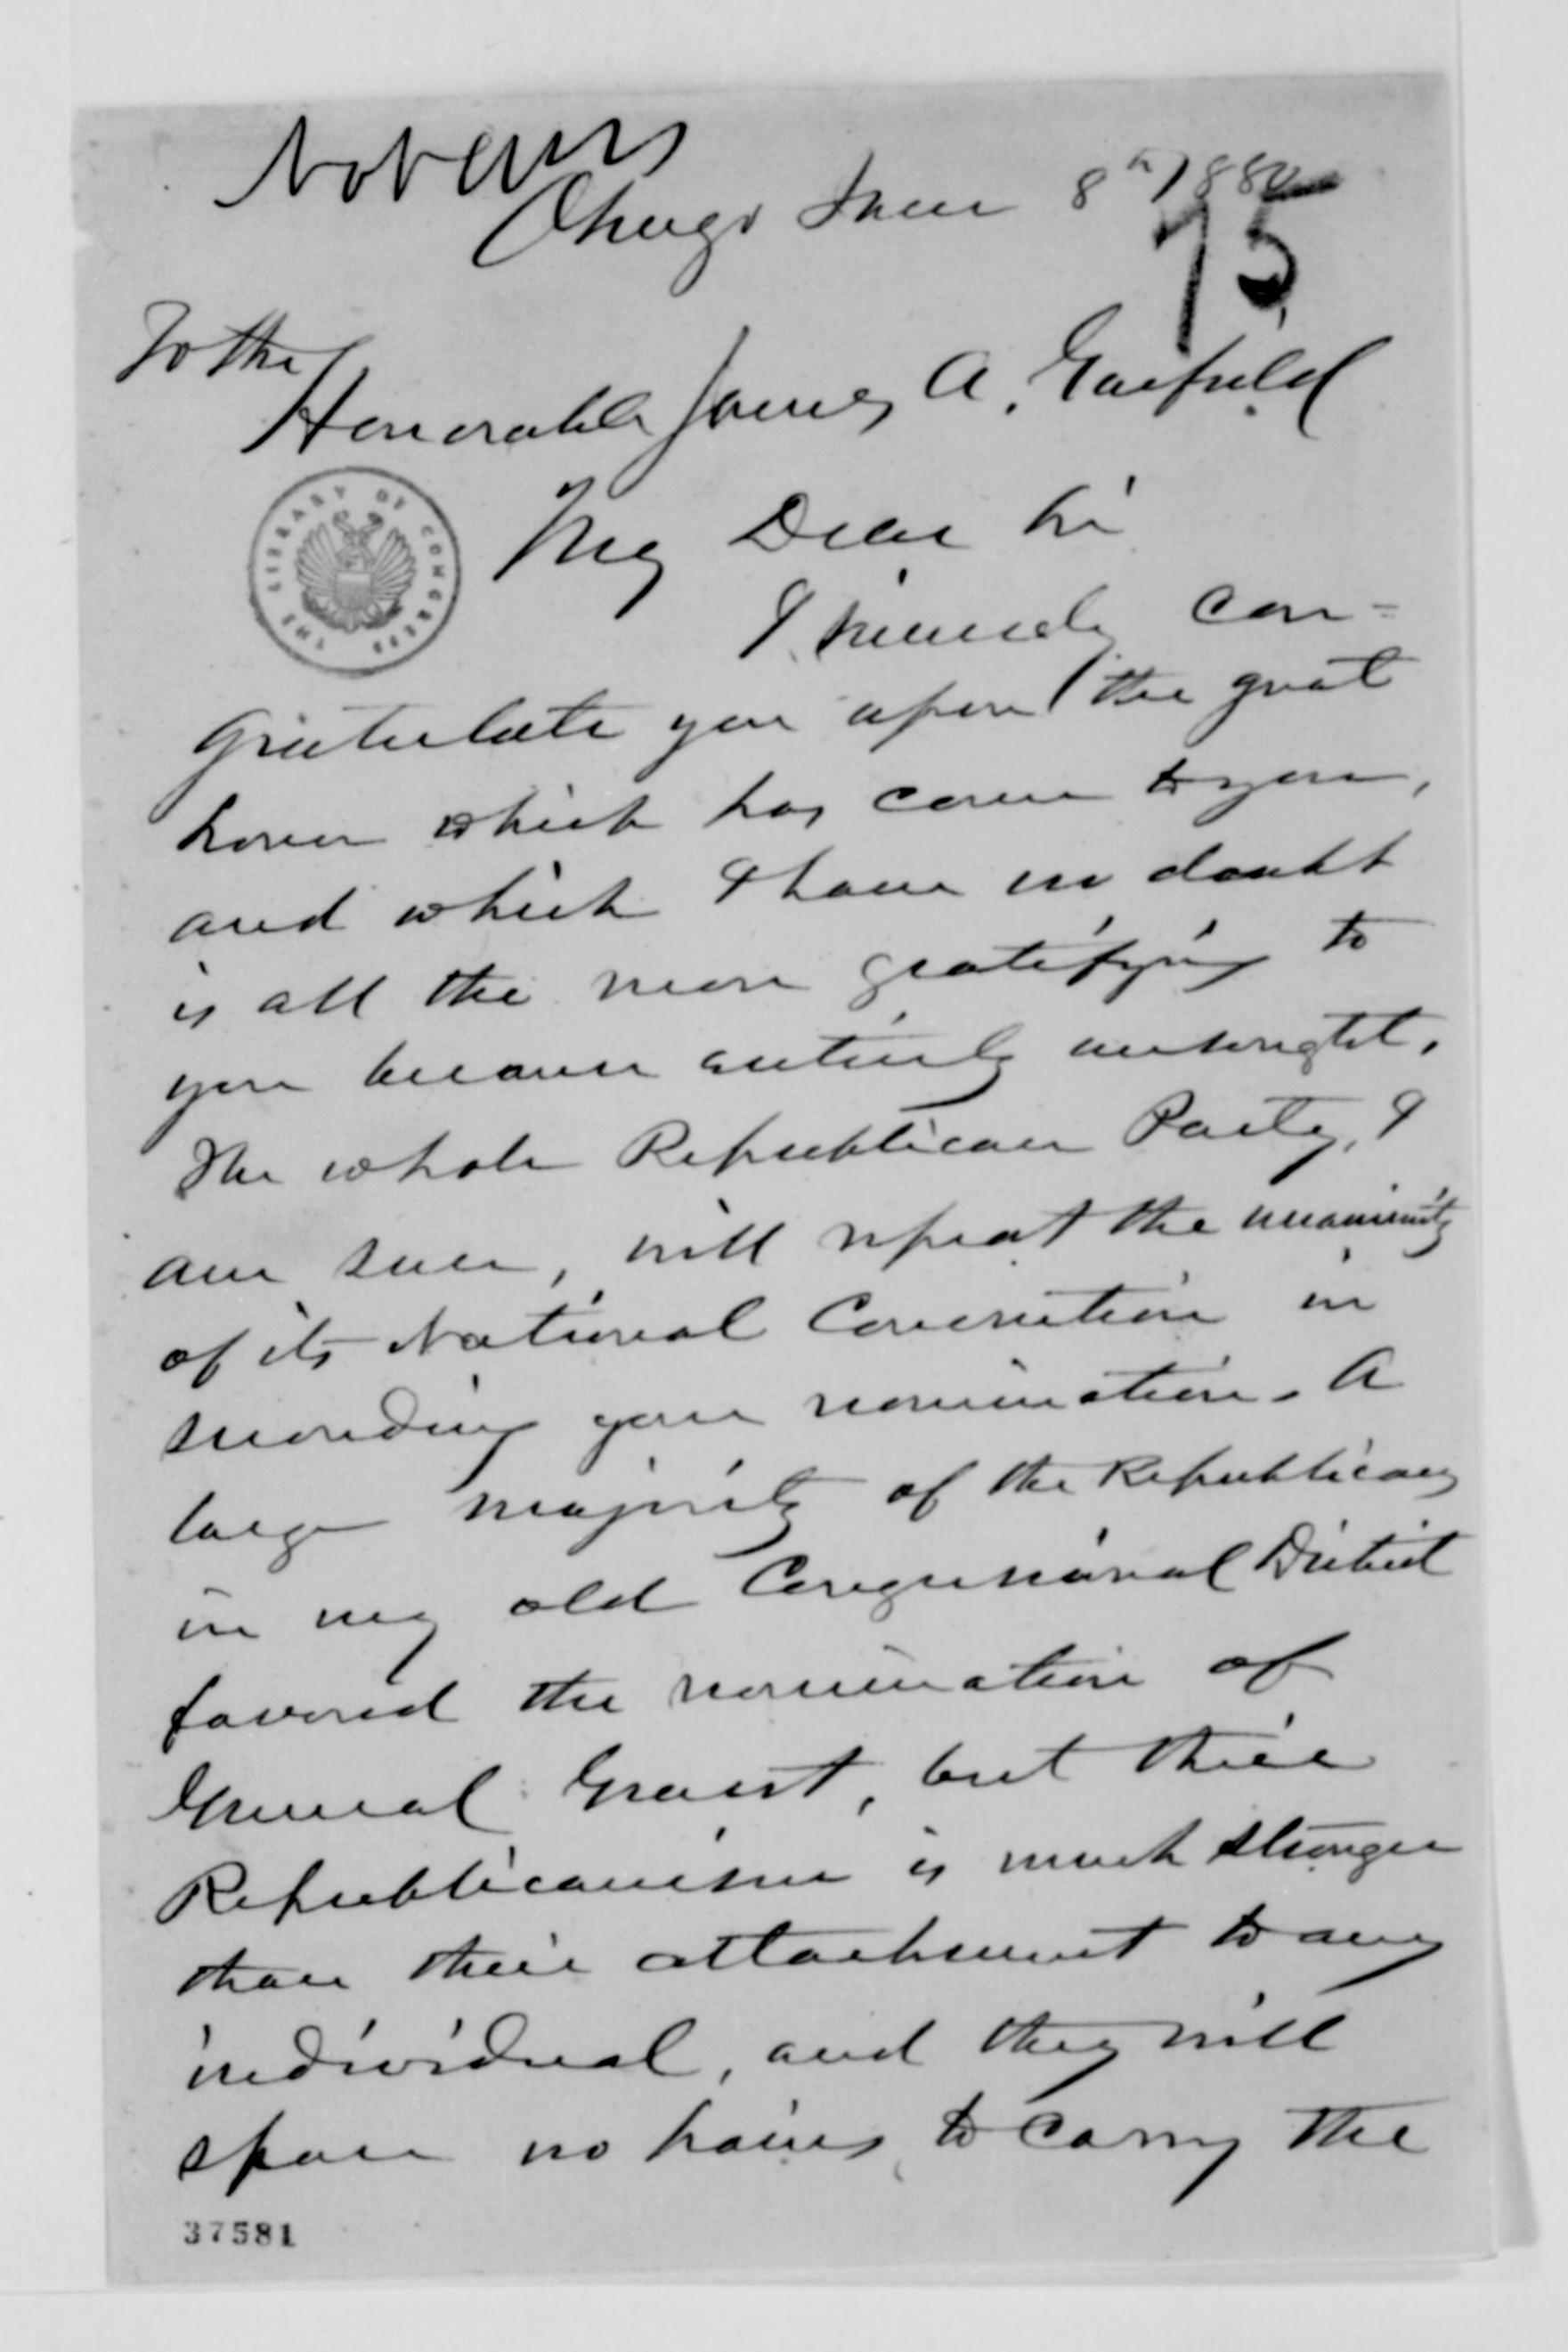 Chicago June 8th 1880
75
To the
Honorable James A. Garfield
THE LIBRARY OF CONGRESS
My Dear Sir
I sincerely con=
gratulate you upon the great
honor which has come to you,
and which I have no doubt
is all the more gratifying to
you because entirely unsought.
The whole Republican Party, I
am sure, will repeat the unanimity
of its National Convention in
seconding your nomination. A
large majority of the Republicans
in my old Congressional District
favored the nomination of
General Grant, but their
Republicanism is much stronger
than their attachment to any
individual, and they will
spare no pains to carry the
37581